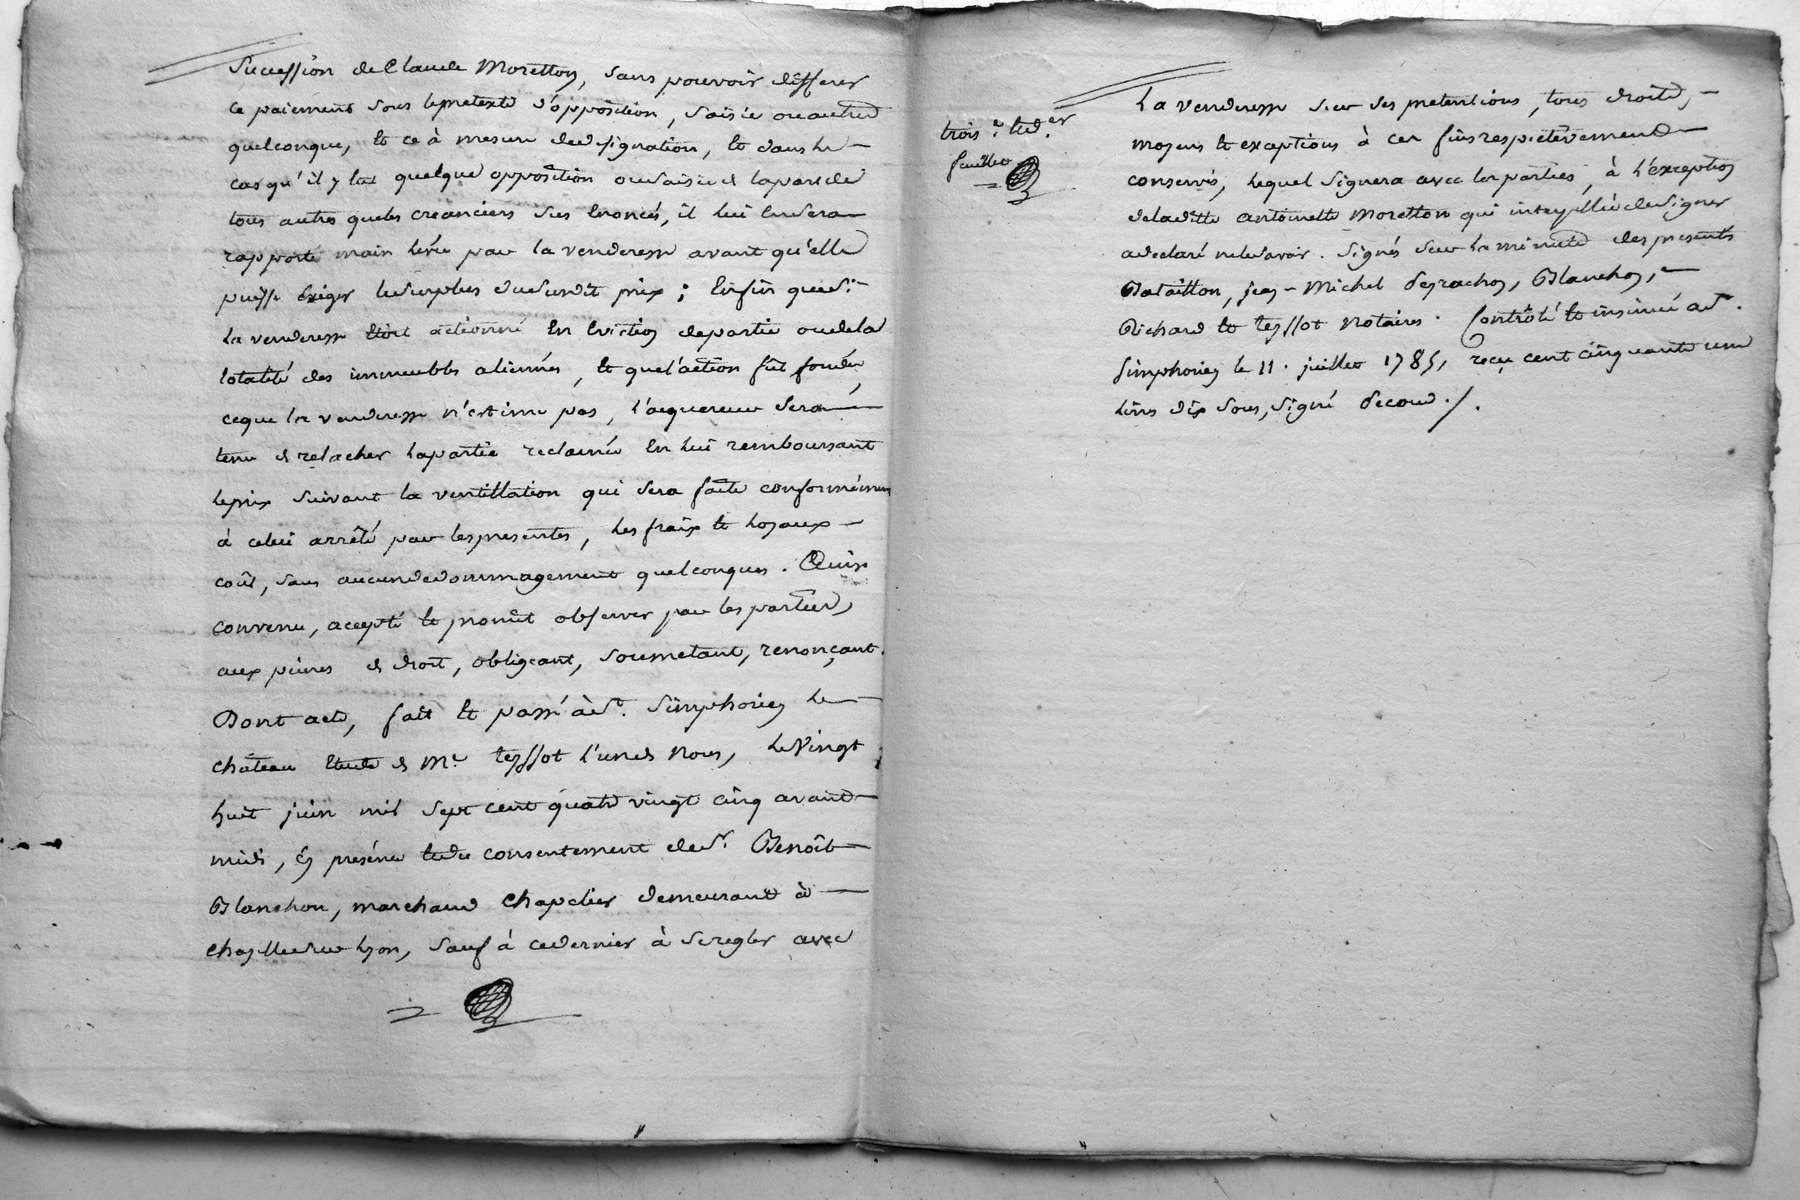 Succession de Claude Moretton, sans pouvoir differer
ce paiement sous le pretexte d'opposition, saisie ou autre
quelconque, et ce à mesure de designation, et dans le
cas qu'il y eut quelque opposition ou saisie de la part de
tous autres que les creanciers sus enoncés, il lui en sera
rapporté main levée par la venderesse avant qu'elle
puisse exiger le surplus du susdit prix; enfin que si
la venderesse etoit actionnée en eviction de partie ou de la
totalité des immeubles alienés, et que l'action fût fondée,
ce que la venderesse n'estime pas, l'acquereur sera
tenu de relacher la partie reclamée en lui remboursant
le prix suivant la ventillation qui sera faite conformément
à celui arrêté par les presentes, les fraix et loyaux
coût, sans aucun dedommagement quelconques. Ainsi
convenu, accepté et promit observer par les parties,
aux peines de droit, obligeant, soumetant, renonçant.
Dont acte, fait et passé à St. Simphorien le
château etude de Me. teyssot l'un de nous, le vingt
huit juin mil sept cent quatre vingt cinq avant
midi, en présence et du consentement de Sr. Benoît
Blanchon, marchand chapelier demeurant à
Chazelle sur Lyon, sauf à ce dernier à se regler avec
trois.e et d.er
feuillet
La venderesse sur ses pretentions, tous droits,
moyens et exceptions à ces fins respectivement
conservés, lequel signera avec les parties, à l'exception
de laditte antoinette Moretton qui interpellée de signer
a declaré ne le savoir. Signés sur la minute des presentes
Bataillon, jean-Michel Desrachon, Blanchon,
Richard et teyssot notaires. Contrôlé et insinué a St.
Simphorien le 11. juillet 1785, reçu cent cinquante une
livres dix sous, signé Decoud ./.